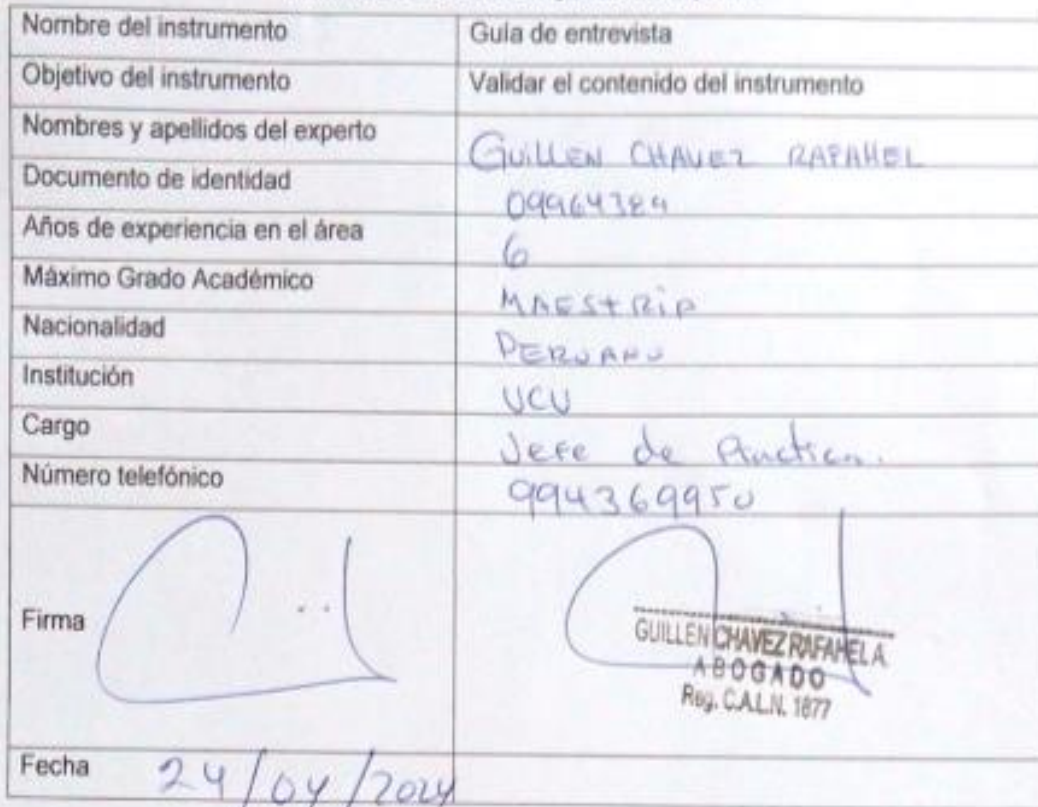 Nombre del instrumento Guía de entrevista
Objetivo del instrumento Validar el contenido del instrumento
Nombres y apellidos del experto GUILLEN CHAVEZ RAFAHEL
Documento de identidad 09964389
Años de experiencia en el área 6
Máximo Grado Académico MAESTRIA
Nacionalidad PERUANO
Institución UCV
Cargo Jefe de Practica.
Número telefónico 994369950
Firma
GUILLEN CHAVEZ RAFAHEL A.
ABOGADO
Reg. C.A.L.N. 1877
Fecha 24/04/2024